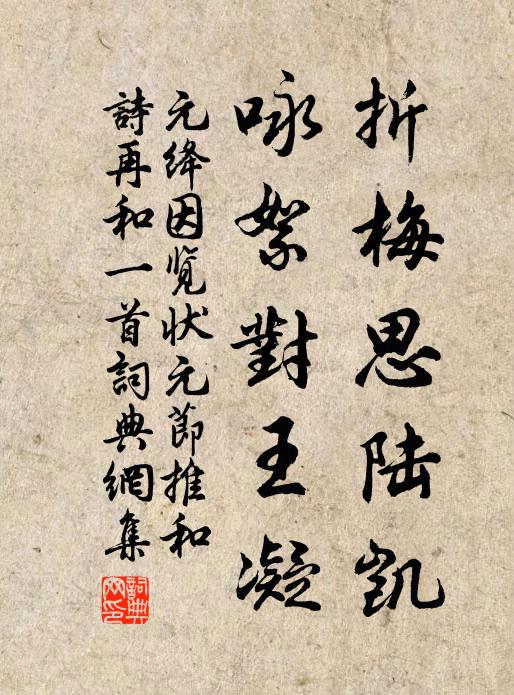 折梅思陆凯
咏絮對王凝
元绛因览状元節推和
詩再和一首詞典網集
詞典網印